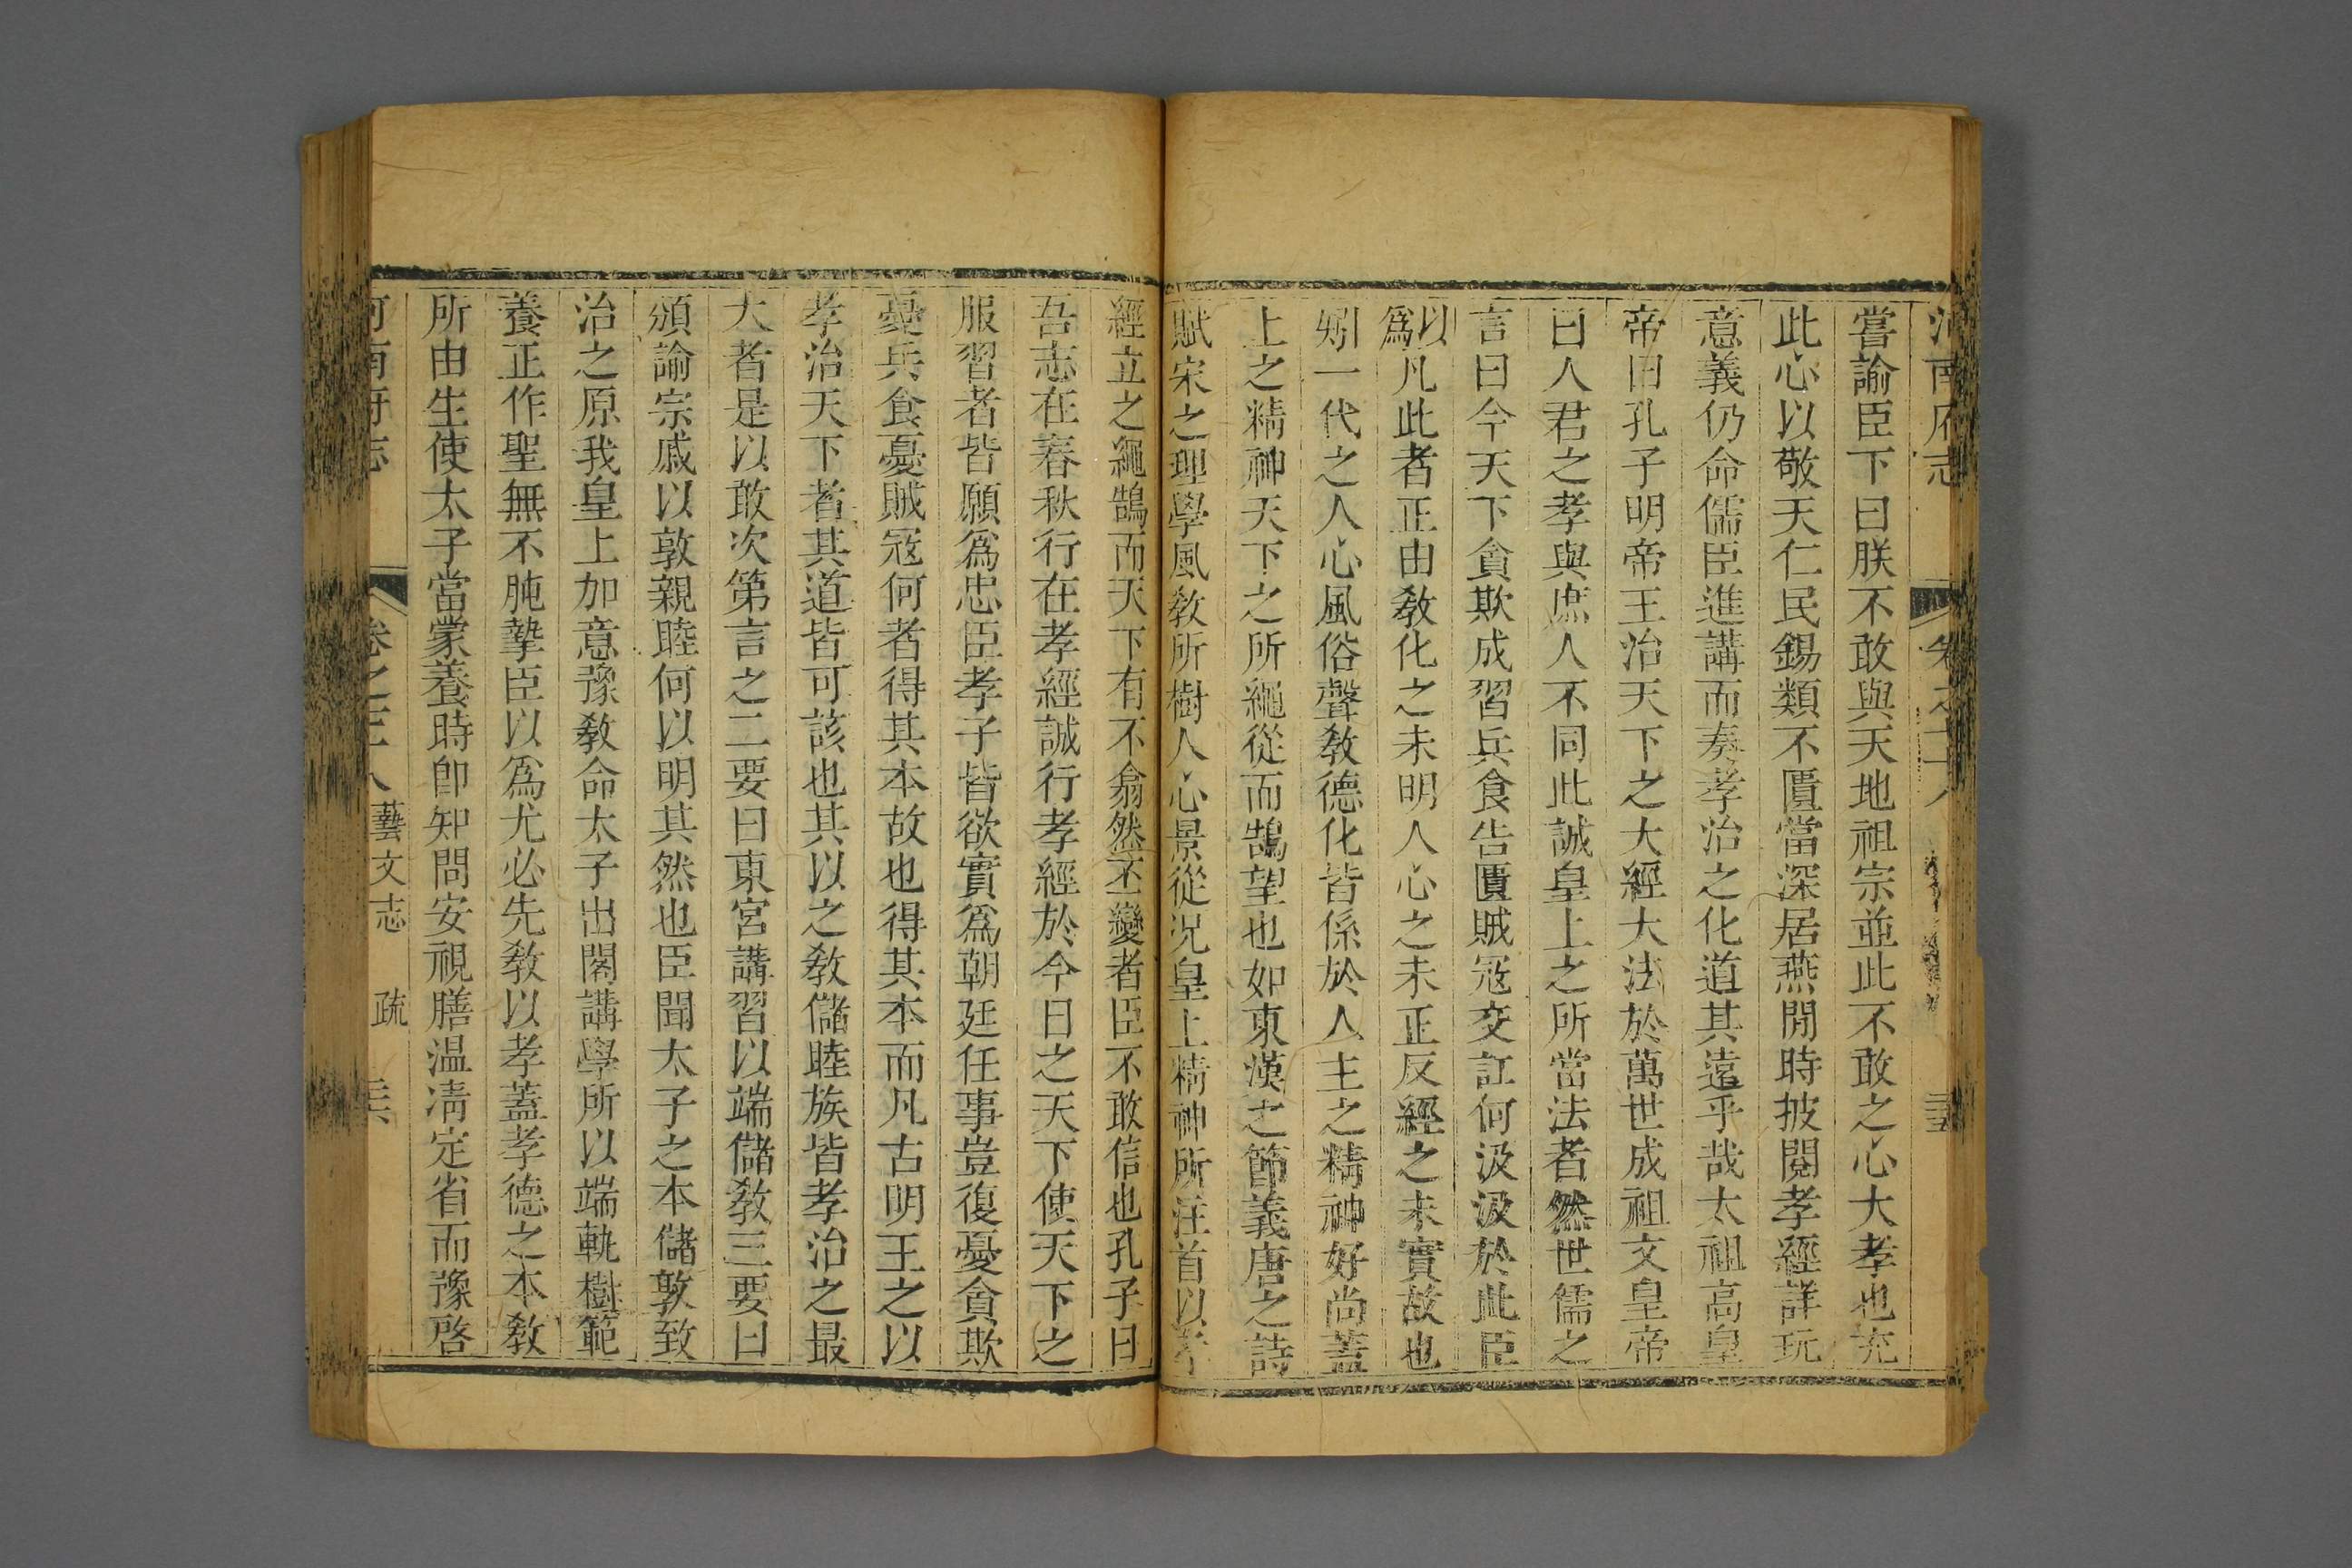 河南府志 卷之二十八
嘗諭臣下曰朕不敢與天地祖宗並此不敢之心大孝也充
此心以敬天仁民錫類不匱當深居燕閒時披閱孝經詳玩
意義仍命儒臣進講而奏孝治之化道其遠乎哉太祖高皇
帝曰孔子明帝王治天下之大經大法於萬世成祖文皇帝
曰人君之孝與庶人不同此誠皇上之所當法者然世儒之
言曰今天下貪欺成習兵食告匱賊冦交訌何汲汲於此臣
以爲凡此者正由敎化之未明人心之未正反經之未實故也
矧一代之人心風俗聲敎德化皆係於人主之精神好尚蓋
上之精神天下之所繩從而鵠望也如東漢之節義唐之詩
賦宋之理學風敎所樹人心景從況皇上精神所注首以孝
經立之繩鵠而天下有不翕然丕變者臣不敢信也孔子曰
吾志在春秋行在孝經誠行孝經於今日之天下使天下之
服習者皆願爲忠臣孝子皆欲實爲朝廷任事豈復憂貪欺
憂兵食憂賊冦何者得其本故也得其本而凡古明王之以
孝治天下者其道皆可該也其以之敎儲睦族皆孝治之最
大者是以敢次第言之二要曰東宮講習以端儲敎三要曰
頒諭宗戚以敦親睦何以明其然也臣聞太子之本儲敦致
治之原我皇上加意豫敎命太子出閣講學所以端軌樹範
養正作聖無不肫摯臣以爲尤必先敎以孝蓋孝德之本敎
所由生使太子當蒙養時卽知問安視膳温凊定省而豫啓
河南府志 卷之二十八 藝文志 疏